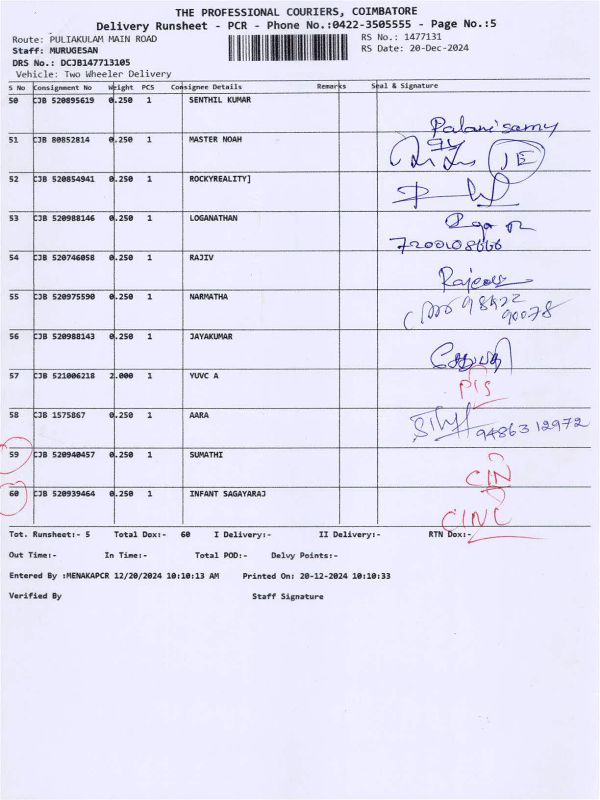 THE PROFESSIONAL COURIERS, COIMBATORE
Delivery Runsheet - PCR - Phone No.:0422-3505555 - Page No.:5
Route: PULIAKULAM MAIN ROAD RS No.: 1477131
Staff: MURUGESAN RS Date: 20-Dec-2024
DRS No.: DCJB147713105
Vehicle: Two Wheeler Delivery
S No Consignment No Weight PCS Consignee Details Remarks Seal & Signature
50 CJB 520895619 0.250 1 SENTHIL KUMAR
Palanisamy
51 CJB 80852814 0.250 1 MASTER NOAH
52 CJB 520854941 0.250 1 ROCKYREALITY]
53 CJB 520988146 0.250 1 LOGANATHAN
7200108666
54 CJB 520746058 0.250 1 RAJIV
55 CJB 520975590 0.250 1 NARMATHA
90078
56 CJB 520988143 0.250 1 JAYAKUMAR
57 CJB 521006218 2.000 1 YUVC A
58 CJB 1575867 0.250 1 AARA
9486312972
59 CJB 520940457 0.250 1 SUMATHI
CIN
60 CJB 520939464 0.250 1 INFANT SAGAYARAJ
Tot. Runsheet:- 5 Total Dox:- 60 I Delivery:- II Delivery:- RTN Dox:-
Out Time:- In Time:- Total POD:- Delvy Points:-
Entered By :MENAKAPCR 12/20/2024 10:10:13 AM Printed On: 20-12-2024 10:10:33
Verified By Staff Signature